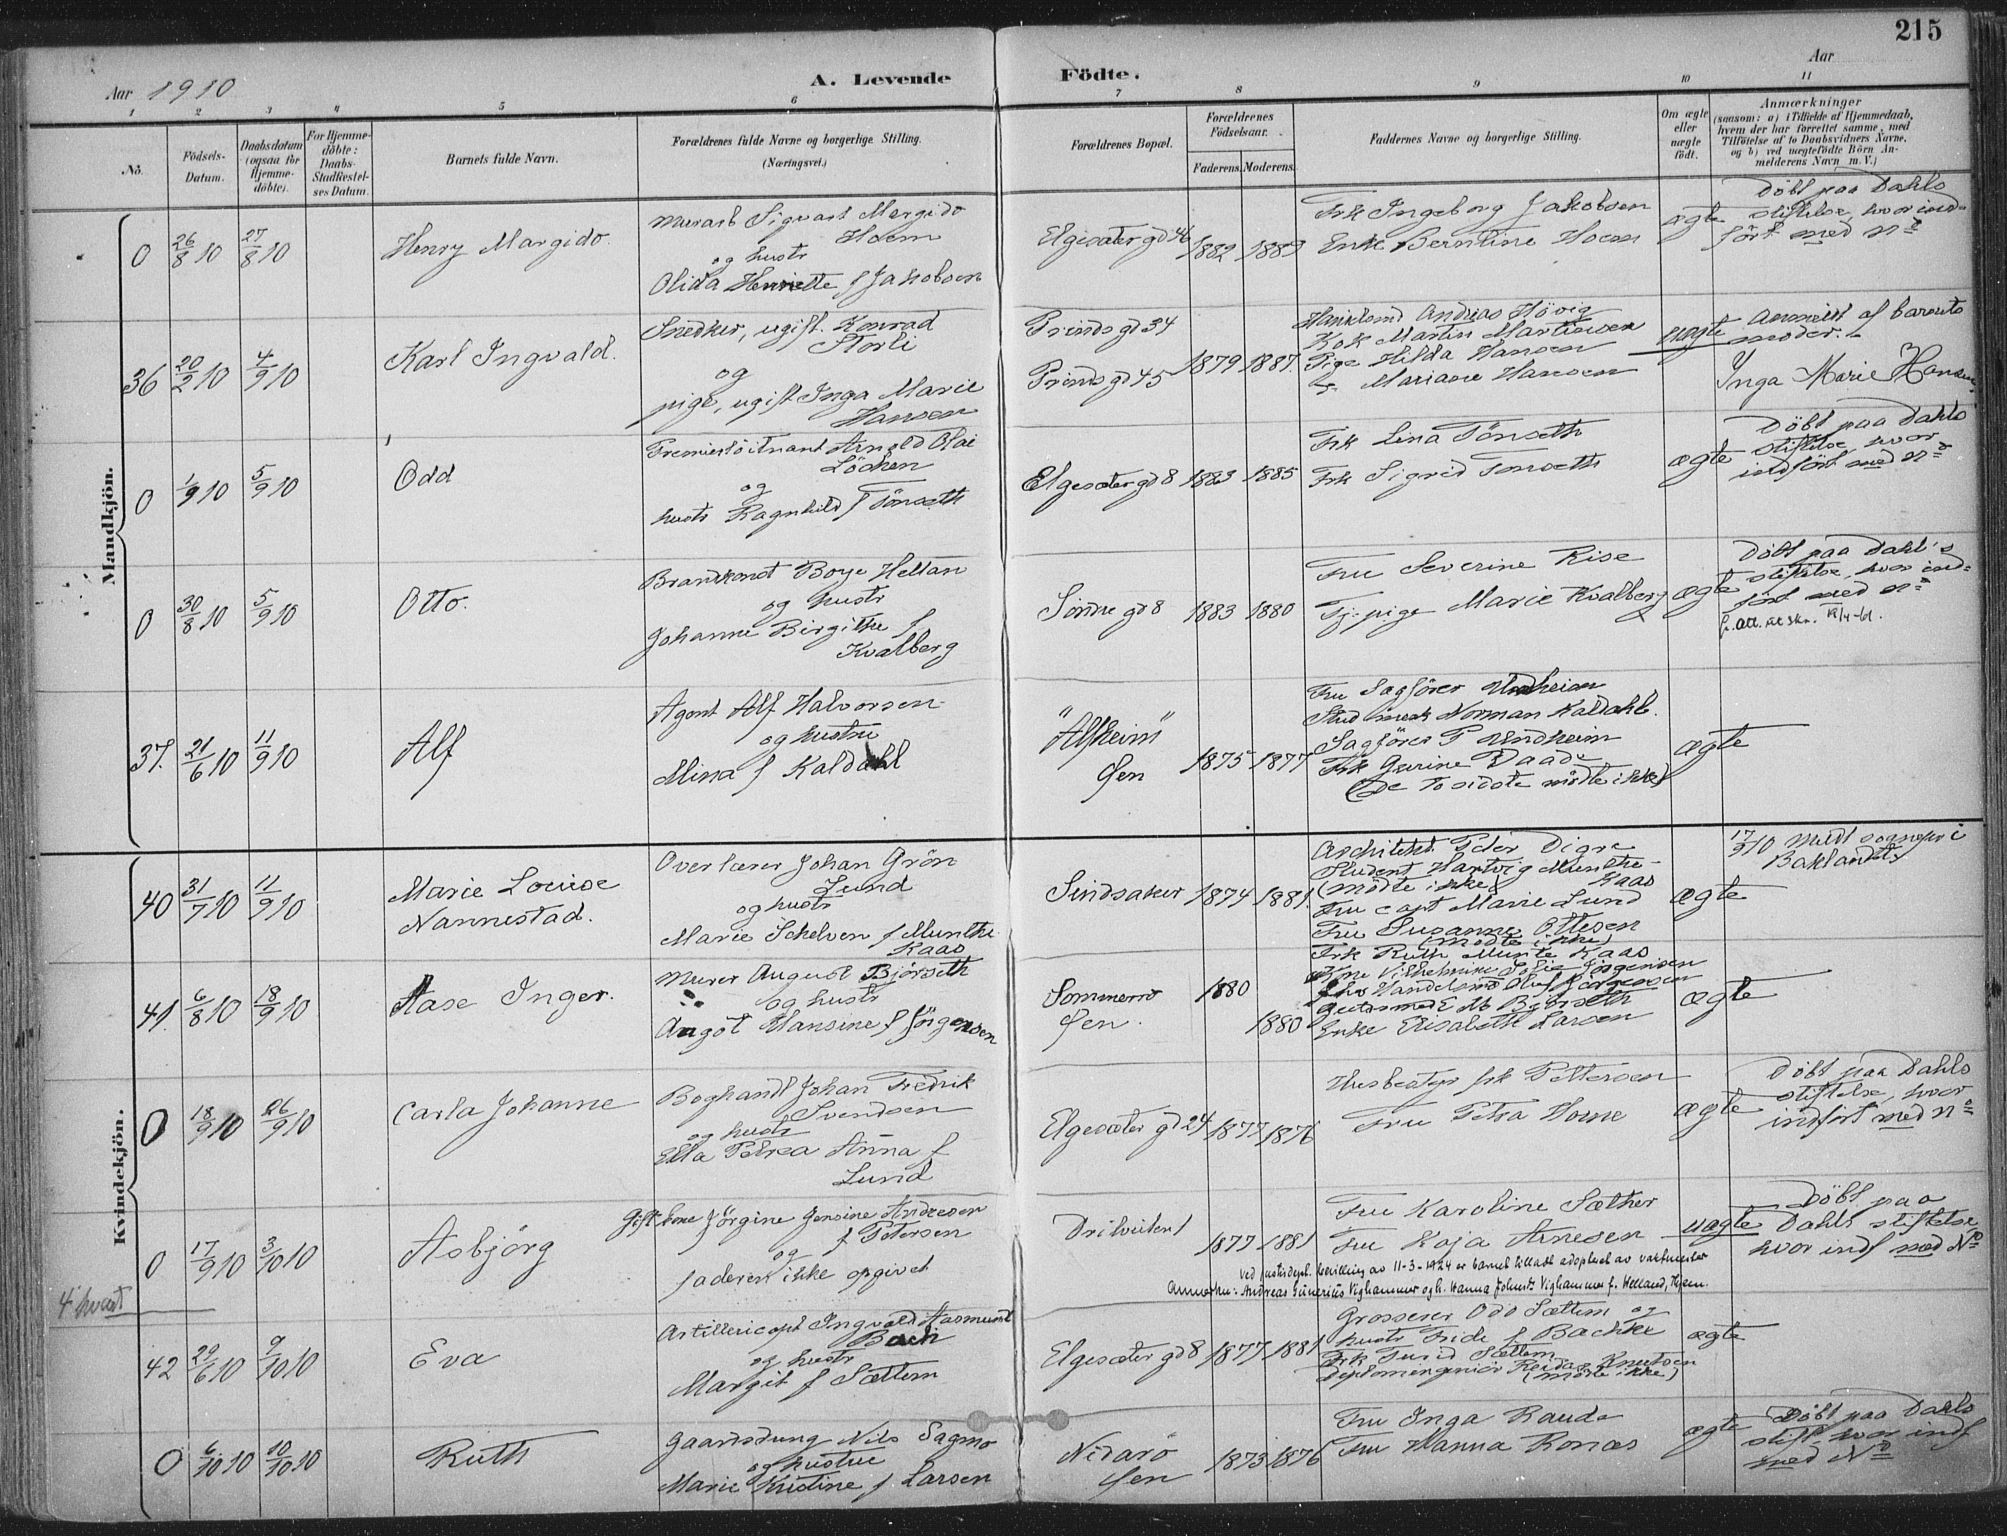 215
Aar 1910
A. Levende
Födte.
Aar
1 2 3 4 5 6 7 8 9 10 11
No.
Födsels-Datum.
Daabsdatum (ogsaa for Hjemme-döbte).
For Hjemme-döbte: Daabs-Stadfæstel-ses Datum.
Barnets fulde Navn.
Forældrenes fulde Navne og borgerlige Stilling. (Næringsvei.)
Forældrenes Bopæl.
Forældrenes Födselsaar.
Faderens. Moderens.
Faddernes Navne og borgerlige Stilling.
Om ægte eller uægte födt.
Anmærkninger
(saasom: a) i Tilfælde af Hjemmedaab, hvem der har forrettet samme, med Tilföielse af to Daabsvidners Navne, og b) ved uægtefödte Börn An-melderens Navn m. V.)
Mandkjön.
0 26/8 10 27/8 10
Henry Margido.
Murarb Sigvart Margido
Hoem
og hustr
Olida Henriette f Jakobsen
Elgesæter gd 46
1882 1889
Frk Ingeborg Jakobsen
Enke Berntine Hoem
ægte
Döbt paa Dahls
stiftelse, hvor ind-
fört med No
36 20/2 10 4/9 10
Karl Ingvald.
Snedker, ugift. Konrad
Storli
og
pige, ugift Inga Marie
Hansen
Prinds gd 34
Prinds gd 45
1879 1887.
Andreas Hövig
Kok Martin Martinsen
Pige Hilda Hansen
Mariane Hansen
uægte
Anmeldt af barnets
moder.
Inga Marie Hansen
0 1/9 10 5/9 10
Odd
Premierlöitnant Arnold Olai
Löchen
og
hustr Ragnhild f Tönseth
Elgesæter gd 8
1883 1885
Frk Lina Tönseth
Frk Sigrid Tonseth
ægte
Döbt paa Dahls
stiftelse, hvor
indfört med No
0 30/8 10 5/9 10
Otto.
Brandkonst Boye Heltan
og hustr
Johanne Birgithe f
Kvalberg
Söndre gd 8
1883 1880
Fru Severine Rise
Tj. pige Marie Kvalberg
ægte
Döbt paa Dahl's
stiftelse, hvor ind-
fört med No
37. 21/6 10 11/9 10
Alf
Agent Alf Halvorsen
og hustru
Mina f Kaldahl
"Alfheim"
Öen
1875 1877
Fru Sagförer Undheim
Norman Kaldahl.
Sagförer P Undheim
Frk Gurine Daade
(De to sidste mödte ikke)
ægte
Kvindekjön.
40 31/7 10 11/9 10
Marie Louise
Nannestad.
Overlærer Johan Grön
Lund
og hustr
Marie Schelven f Munthe
Kaas
Sindsaker
1874 1881.
Architekt Peder Digre
Student Hartvig Munthe-
(mödte ikke) Kaas
Fru Capt Marie Lund
Fru Susanne Ottesen
(mödte ikke)
Frk Ruth Munte Kaas
ægte
17/9 10 meldt sognepr i
Baklandet
41. 6/8 10 18/9 10
Aase Inger.
Murer August Björseth
og hustr
Angöt Hansine f Jörgensen
Sommerro
Öen.
1880
1880
Vilhelmine Jörgensen
Handelsmd Olaf Jörgensen
E M Björseth
Enke Elisabeth Larsen
ægte
0 18/9 10 26/9 10
Carla Johanne
Boghandl Johan Fredrik
Svendsen
og hustr
Ella Petrea Anna f
Lund
Elgesæter gd 24
1877 1876
Husbestyr frk Pettersen
Fru Petra Horne
ægte
Döbt paa Dahls
stiftelse, hvor
indfört med No
0 17/9 10 3/10 10
Asbjörg
Gift kone Jörgine Jensine Andresen
f Petersen
og
faderen ikke opgivet
1877 1881
Fru Karoline Sæther
Fru Kaja Arnesen
uægte
Döbt paa
Dahls stiftelse
hvor indf med No
Ved justisdept. bevilling av 11-3-1924 er barnet tillatt adoptert av vaktmester
Andreas Gunerius Vighammer og h. Hanna Johans Vighammer f. Helland, Hjem.
4 hvert
42 29/6 10 9/10 10
Eva
Artillericapt Ingvald Aasmund
Bach
og hustr
Margit f Sættem
Elgesæter gd 8
1877 1881
Grosserer Odd Sættem og
hustr Fride f Bachke
Frk Turid Sættem
Diplomingeniör Reidar Knutsen
(mödte ikke)
ægte
0 6/10 10 10/10 10
Ruth
Gaardsdreng Nils Sagmo
og hustru
Marie Kristine f Larsen
Nidarö
Öen
1873 1876
Fru Inga Raude
Fru Hanna Ronæs
ægte
Döbt paa Dahls
stift hvor indf
med No